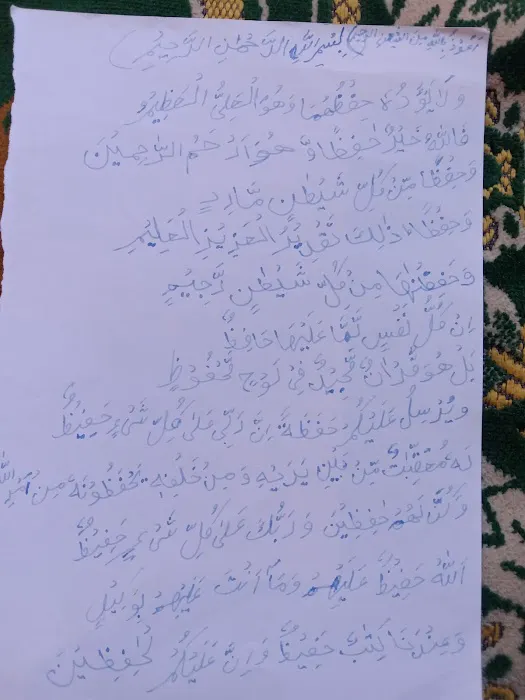 اَعُوْذُ بِاللّٰهِ مِنَ الشَّيْطٰنِ الرَّجِيْمِ (بِسْمِ اللّٰهِ الرَّحْمٰنِ الرَّحِيْمِ)
وَلَا يَؤُدُهٗ حِفْظُهُمَا وَهُوَ الْعَلِىُّ الْعَظِيْمُ
فَاللّٰهُ خَيْرٌ حٰفِظًا وَّ هُوَ اَرْحَمُ الرّٰحِمِيْنَ
وَحِفْظًا مِّنْ كُلِّ شَيْطٰنٍ مَّارِدٍ
وَحِفْظًا ذٰلِكَ تَقْدِيْرُ الْعَزِيْزِ الْعَلِيْمِ
وَحَفِظْنٰهَا مِنْ كُلِّ شَيْطٰنٍ رَّجِيْمٍ
اِنْ كُلُّ نَفْسٍ لَّمَّا عَلَيْهَا حَافِظٌ
بَلْ هُوَ قُرْاٰنٌ مَّجِيْدٌ فِىْ لَوْحٍ مَّحْفُوْظٍ
وَيُرْسِلُ عَلَيْكُمْ حَفَظَةً اِنَّ رَبِّىْ عَلٰى كُلِّ شَىْءٍ حَفِيْظٌ
لَهٗ مُعَقِّبٰتٌ مِّنْ بَيْنِ يَدَيْهِ وَمِنْ خَلْفِهٖ يَحْفَظُوْنَهٗ مِنْ اَمْرِ اللّٰهِ
وَكُنَّا لَهُمْ حٰفِظِيْنَ وَرَبُّكَ عَلٰى كُلِّ شَىْءٍ حَفِيْظٌ
اَللّٰهُ حَفِيْظٌ عَلَيْهِمْ وَمَا اَنْتَ عَلَيْهِمْ بِوَكِيْلٍ
وَعِنْدَنَا كِتٰبٌ حَفِيْظٌ وَاِنَّ عَلَيْكُمْ لَحٰفِظِيْنَ